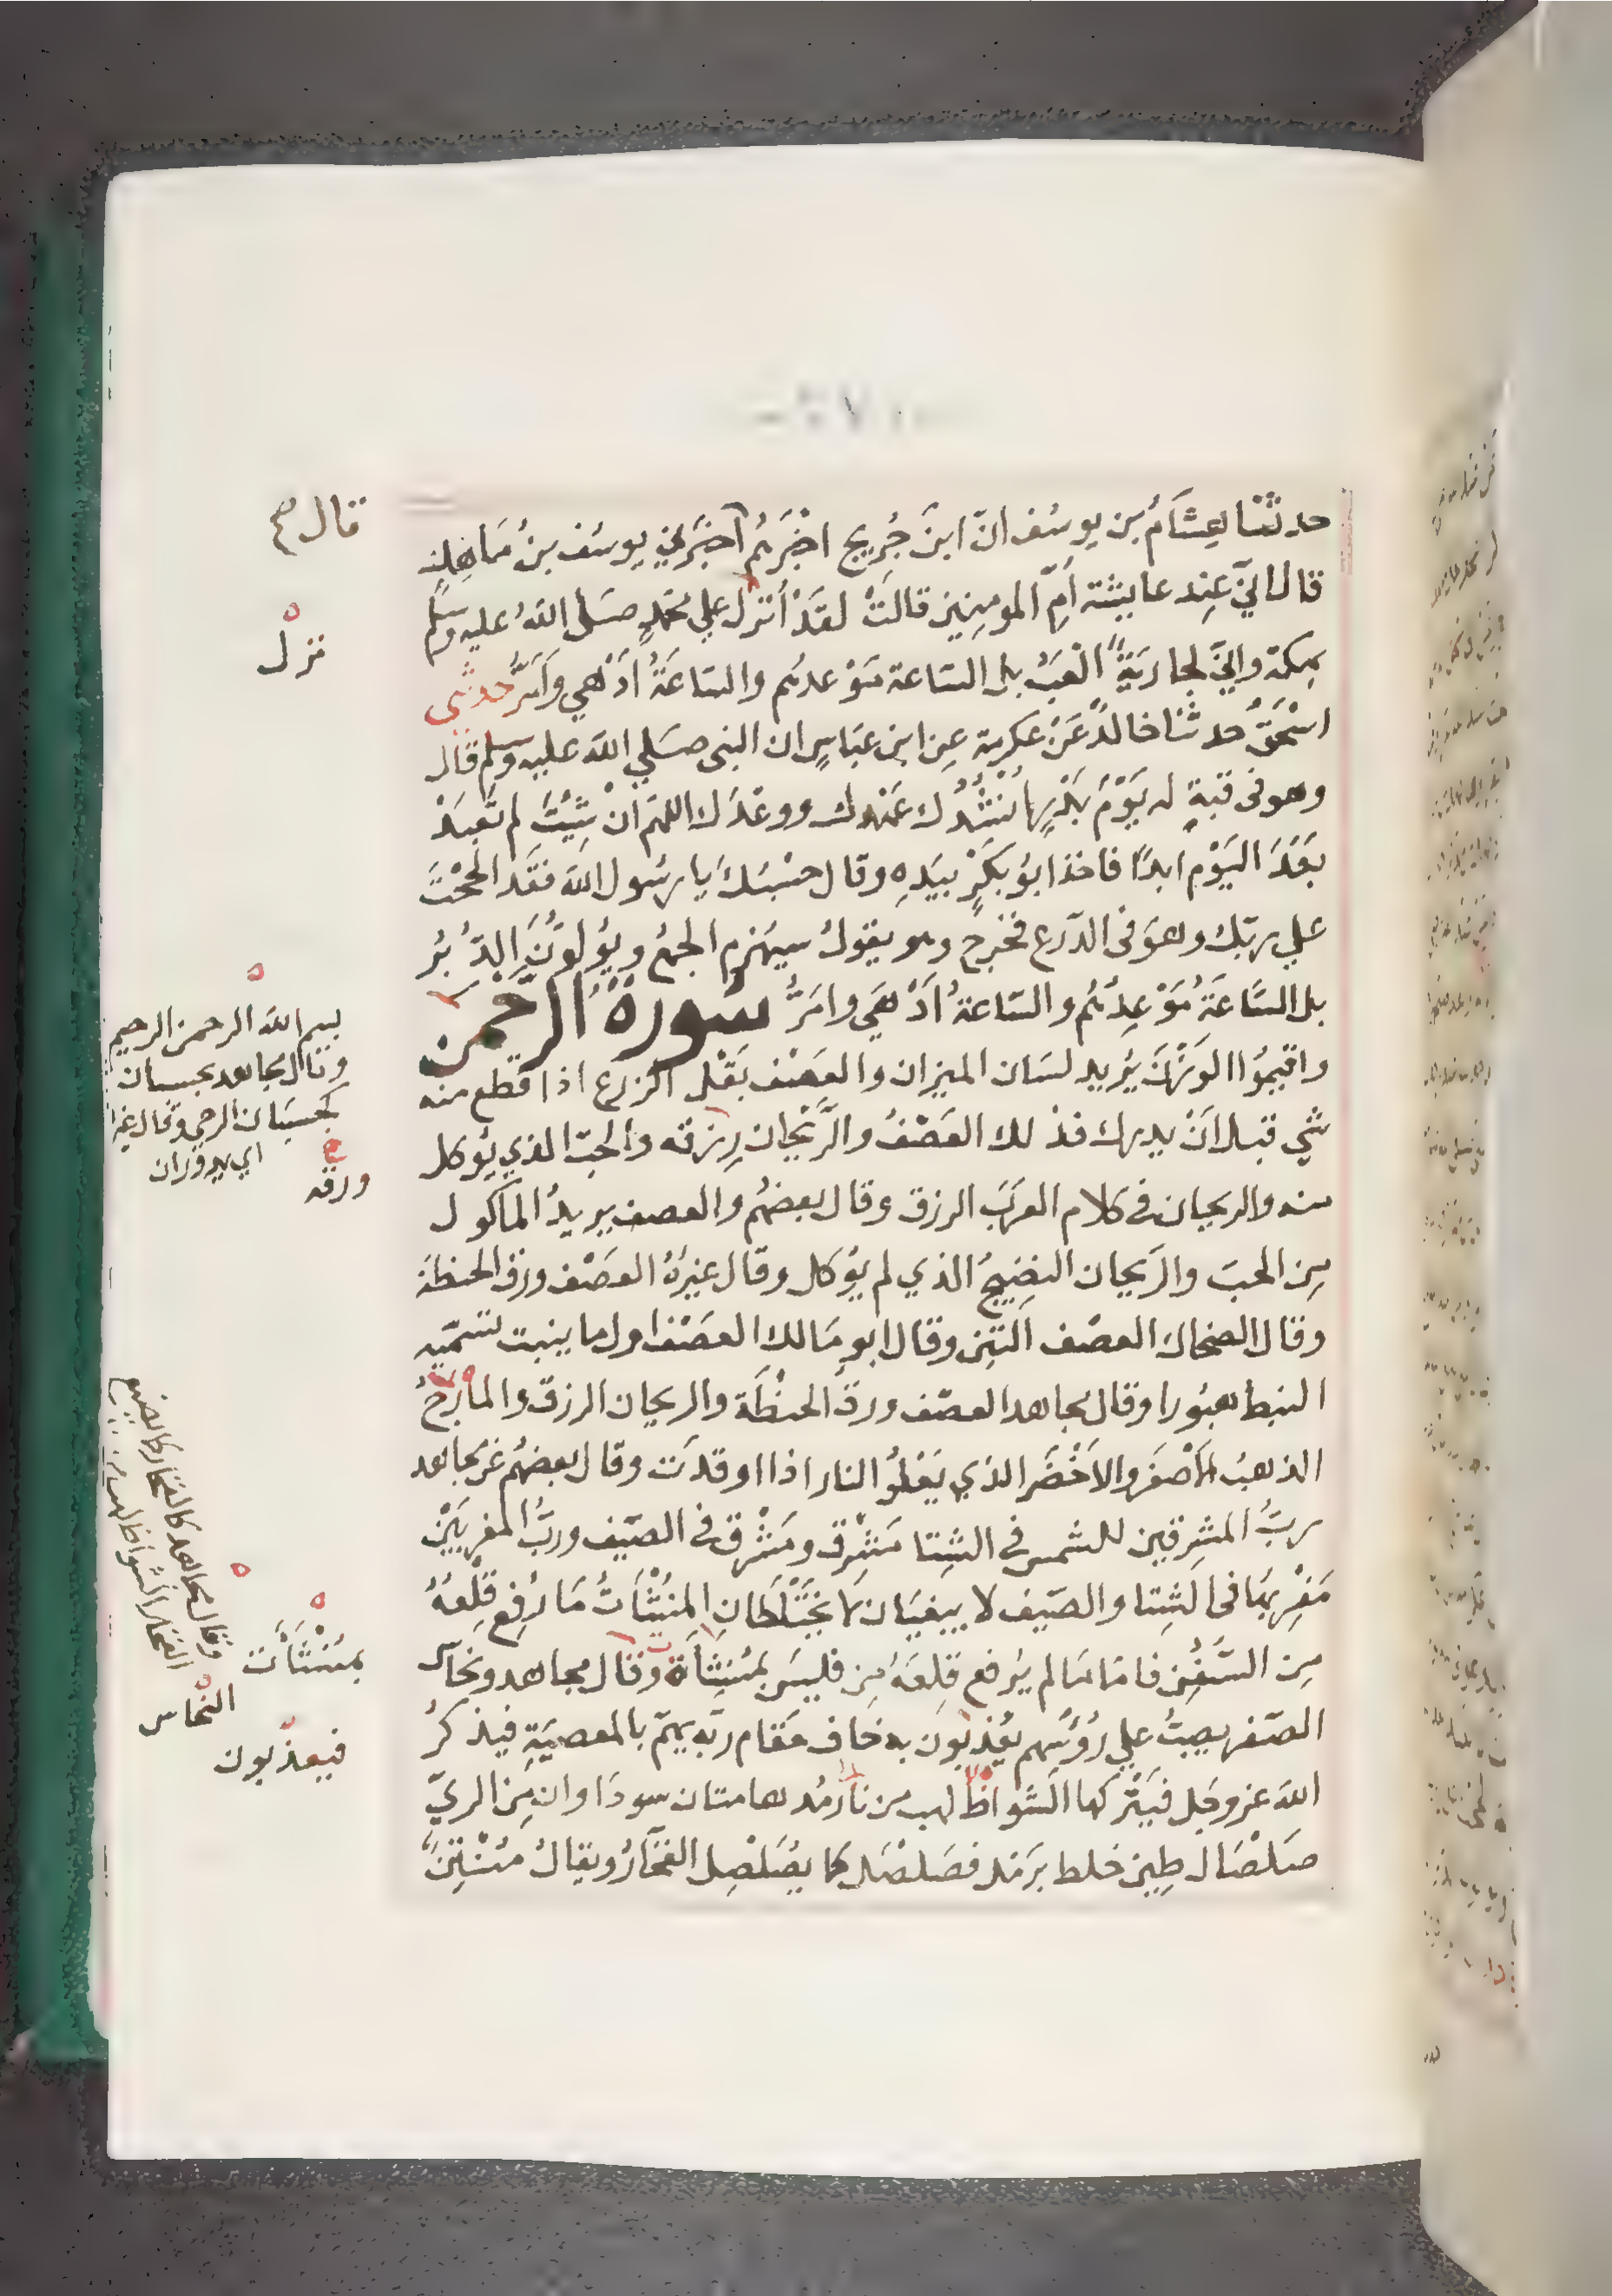 حدثنا هِشَامُ بن يوسُف انّ ابنَ جُرَيج اخْبَرَهُم أَخبَرَني يوسُف بنُ مَاهَِك
قال اني عِند عايشة اُمِّ المومِنِين قالتْ لقَدْ اُنْزِل علي محمّدٍ صَلى اللهُ عليه وسلم
بمكة وانّي لجارِيَةٌ الْعَبُ بل السّاعة مَوْعدهُم والسّاعَةُ اَدْهي وَاَمَرُّ حدثني
اسْحَقُ حدثنا خالدٌ عَنْ عكرمة عن ابن عبَاسٍ ان النبي صَلي الله عليه وسلم قال
وهو في قبةٍ له يَوْمَ بَدْرٍ اَنْشُدُك عَهْدك ووعْدَك اللهمّ انْ شِيْتَ لم تُعبَدْ
بَعْدَ اليَوْم ابدًا فاخذ ابُو بكْرٍ بيَدِهِ وقال حسْبُكَ يا رسُول الله فقَد الحَحْتَ
علي ربّك وهوَ في الدّرع فخرج وهو يقولُ سيهزم الجمعُ ويُولوُّنَ الدّبُر
بل السَّاعَةُ مَوْعِدُهُم والسّاعةُ اَدْهَي وامَرُّ سُورةُ الرحمن
واقيمُوا الوَزْنَ يُريد لسَان الميزان والعَصْف بَقْل الزرع اذا قطع منه
شي قبل اَنْ يدرك فذلك العَصْفُ والرَّيْحان رِزقه والحبّ الذي يُوكل
منه والريحان في كلام العَرَب الرزق وقال بعضهُم والعصف يريدُ الماكول
مِن الحبّ والرَيحان النضِيجُ الذي لم يُوكل وقال غيرُهُ العصْف ورق الحنطة
وقال الضحاك العصْف التّبن وقال ابو مَالك العصْف اول ما ينبت تسمّيه
النبط هبُورا وقال مجاهد العصْف ورق الحنطَة والريحان الرزق والمارجُ
الذهبُ الاَصْفر والاَخْضَر الذي يَعْلُو النار اذا اوقدَت وقال بعضهُم عن مجاهد
ربُّ المشرقين للشمس في الشِتا مَشْرِق ومَشْرق في الصَيف وربُّ المغربَيْن
مَغْرِبُها في الشِتا والصَيف لا يبغيَان لا يَخْتَلَطان المنْشَأتُ مَا رُفع قِلْعُهُ
مِن السُّفُن فامَا مَا لم يُرفع قِلعَهُ مِن فليسَ بمُنشِأة وقال مجاهد ونحاس
الصّفر يصبُّ علي رُوُسِهم يُعذّبُونَ به خَاف مَقام ربّه يهمّ بالمعصيَةِ فيذكرُ
الله عز وجل فيَتْركها الشواظ لهب من نار مُدهامتان سودَاوان مِن الريّ
صَلْصَال طِين خلط برَمْل فصَلصَل كما يصَلْصِل الفخّارُ ويقالُ مُنْتِنٌ
قال
نزل
بسم الله الرحمن الرحيم
وقال مجاهد بحسبان
كحسبَان الرحي وقال غيره
ورقه
بمُنْشَأَت
النّحاس
فيعذّبون
وقال مجاهد كالفخار كما يصنع
الفخار الشواظ لهب